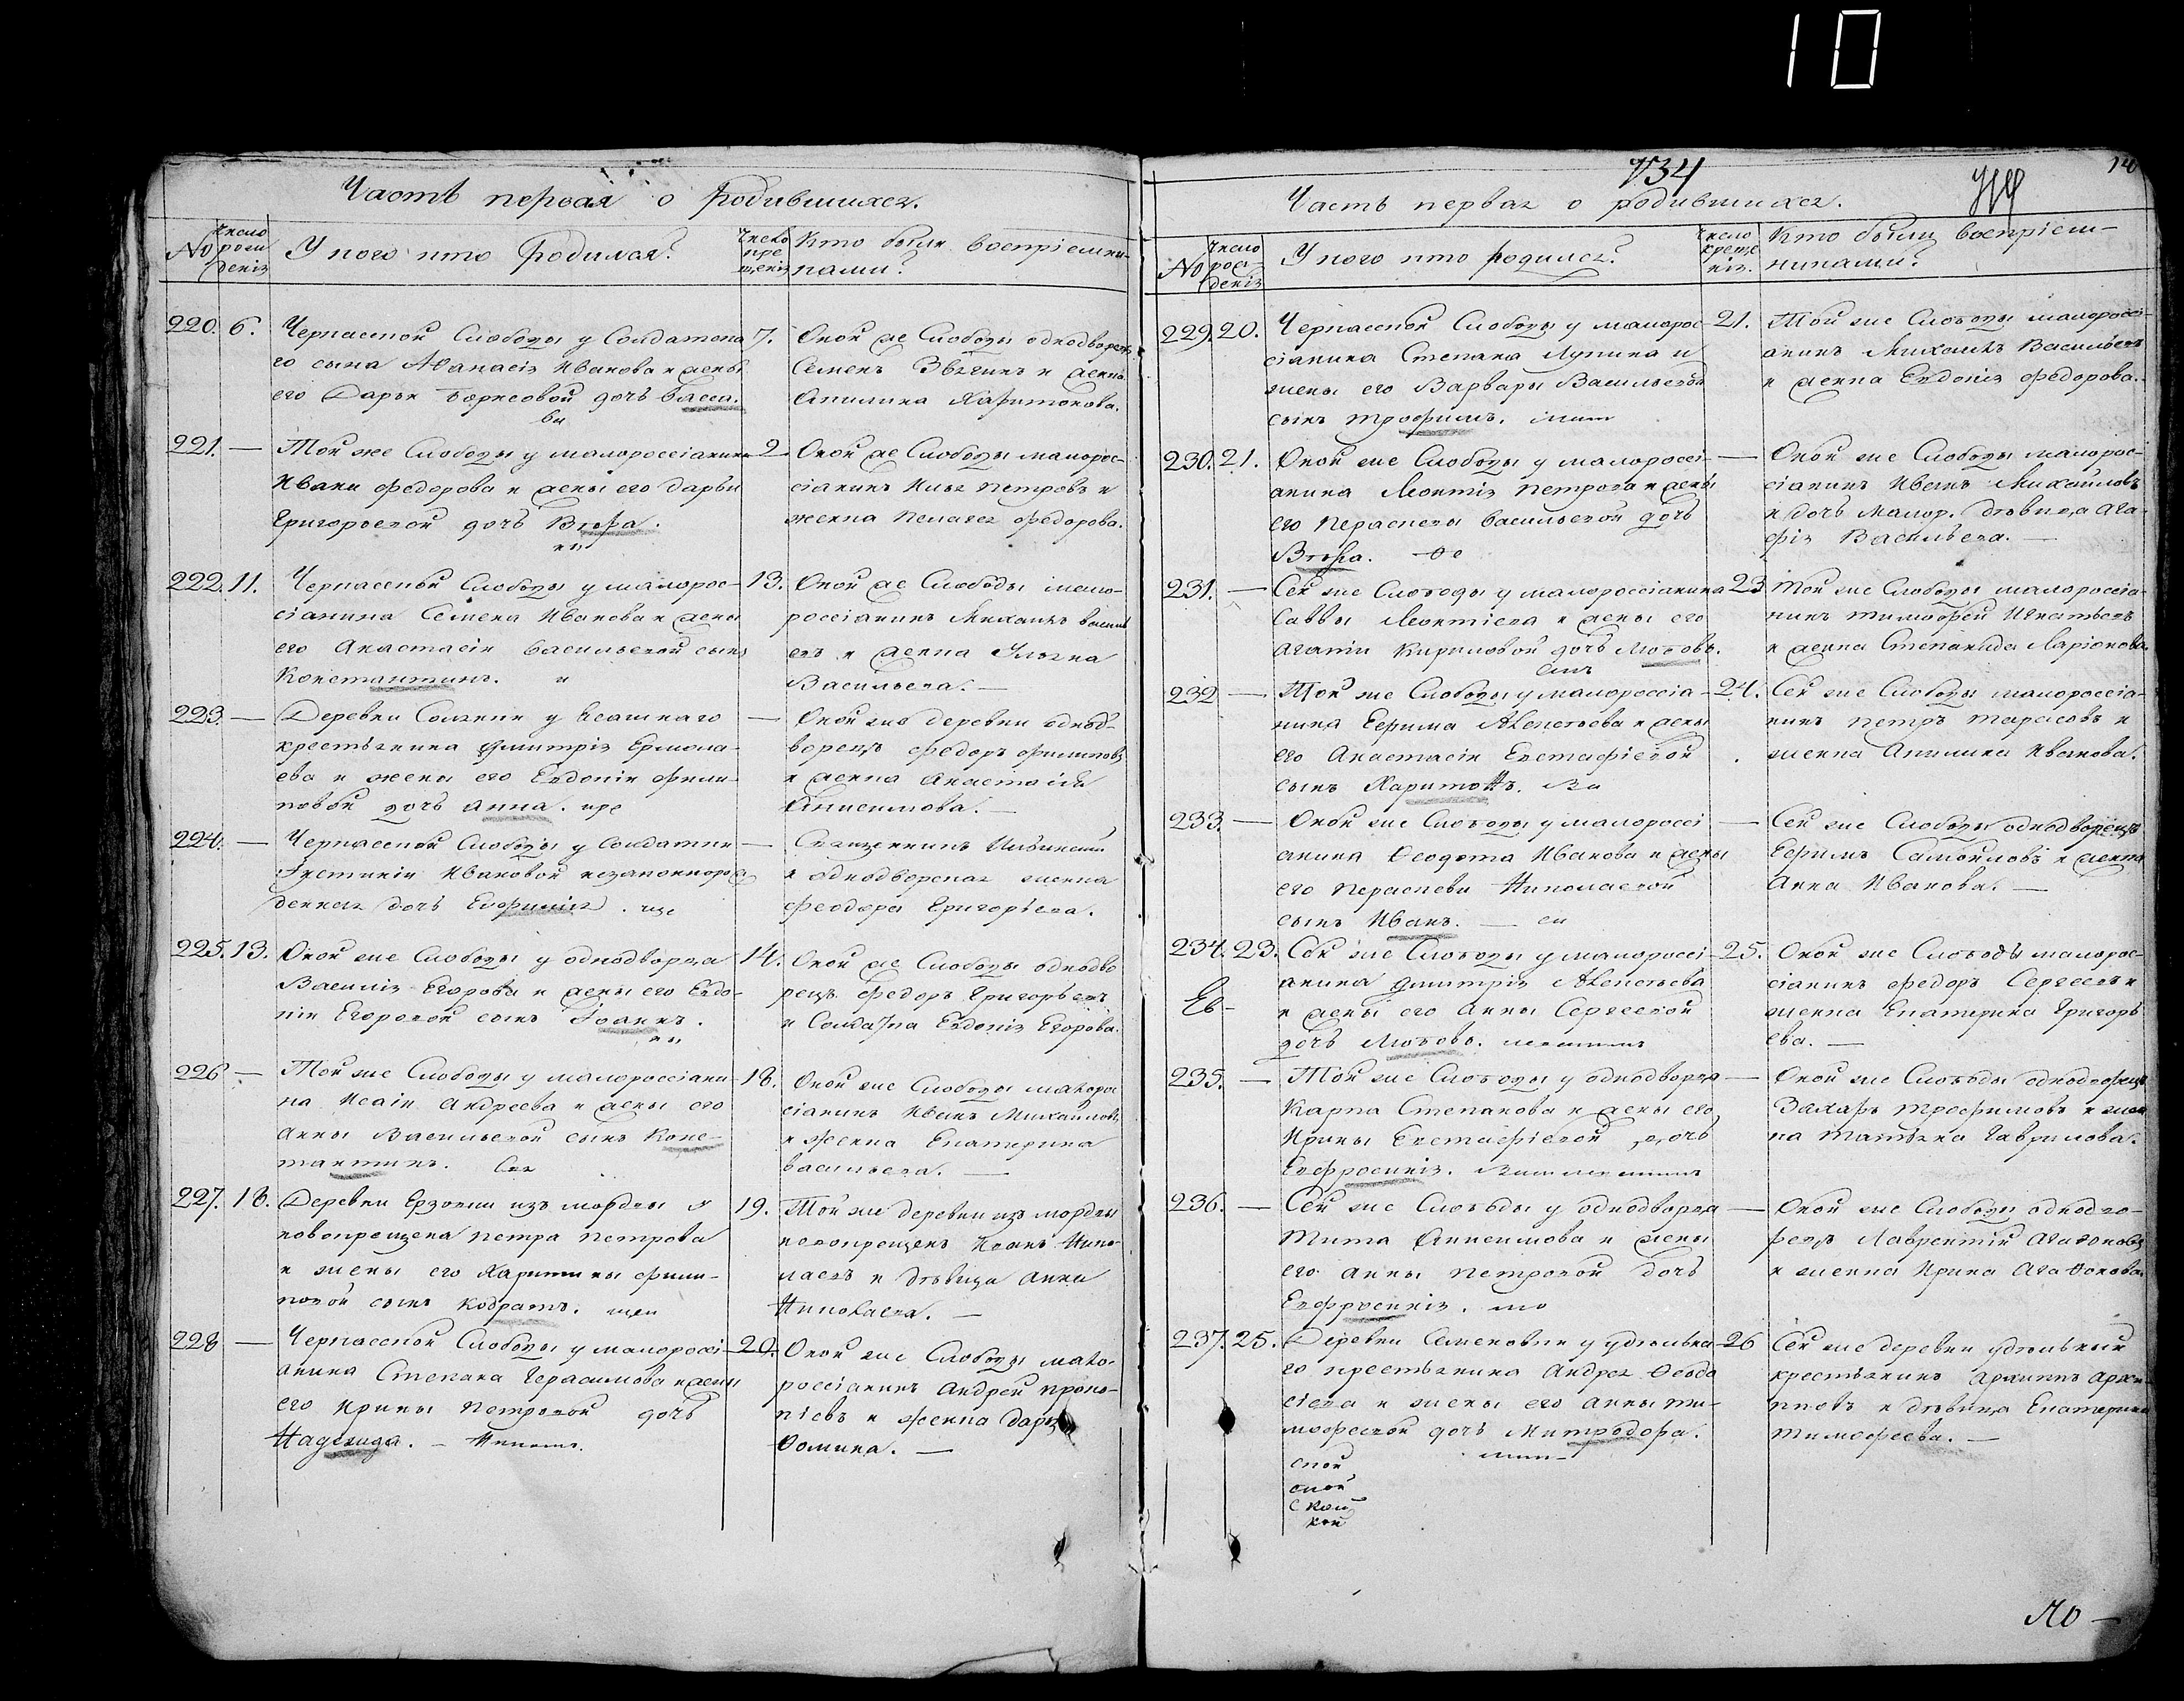 10
Часть первая о родившихся.
№
Число рож дения
У кого кто родился?
Число кре щения
Кто были восприемни-
ками?
220. 6. Черкасской Слободы у Солдатска
го сына Афанасія Иванова и жены
его Дарьи Борисовой дочь Васса.
7. Оной же Слободы однодворецъ
Семенъ и женка
Акилина Харитонова.
221. — Той же Слободы у малороссіянина
Ивана Федорова и жены его Дарьи
Григорьевой дочь Вѣра.
— Оной же Слободы малорос-
сіянинъ Илья Петровъ и
женка Пелагея Федорова.
222. 11. Черкасской Слободы у малорос-
сіянина Семена Иванова и жены
его Анастасіи Васильевой сынъ
Константинъ.
13. Оной же Слободы мало-
россіянинъ Михаилъ Василь
евъ и женка Ульяна
Васильева. —
223. — Деревни у
крестьянина Дмитрія Ермола-
ева и жены его Евдокіи Фили-
повой дочь Анна.
— Оной же деревни однод-
ворецъ Федоръ Филиповъ
и женка Анастасія
Анисимова. —
224. — Черкасской Слободы у Солдатки
Устиніи Ивановой незаконнорож
денная дочь Евфимія.
— Священникъ
и однодворская женка
Феодора Григорьева.
225. 13. Оной же Слободы у однодворца
Василія Егорова и жены его Евдо-
кіи Егоровой сынъ Іоаннъ.
14. Оной же Слободы однодво
рецъ Федоръ Григорьевъ
и Солдатка Евдокія Егорова.
226 — Той же Слободы у малороссіяни-
на Исаіи Андреева и жены его
Анны Васильевой сынъ Конс-
тантинъ.
18. Оной же Слободы малорос
сіянинъ Иванъ Михайловъ
и женка Екатерина
Васильева. —
227. 18. Деревни Ерзовки изъ мордвы у
новокрещена Петра Петрова
и жены его Харитины Фили-
повой сынъ Кодратъ.
19. Той же деревни изъ мордвы
новокрещенъ Иванъ Нико-
лаевъ и дѣвица Анна
Николаева. —
228 — Черкасской Слободы у малороссі-
янина Степана Герасимова и жены
его Ирины Петровой дочь
Надежда. —
20. Оной же Слободы мало-
россіянинъ Андрей Проко-
піевъ и женка Дарья
Фомина. —
734
14
Часть первая о родившихся.
№
Число рож- денія
У кого кто родился?
Число креще нія.
Кто были воспріем-
никами?
229. 20. Черкасской Слободы у малорос-
сіянина Степана Лупина и
жены его Варвары Васильевой
сынъ Трофимъ.
21. Той же Слободы малоросі-
янинъ Михаилъ Васильевъ
и женка Евдокія Федорова.
230. 21. Оной же Слободы у малороссі-
янина Леонтія Петрова и жены
его Парасковьи Васильевой дочь
Вѣра.
— Оной же Слободы малорос-
сіянинъ Иванъ Михайловъ
и дочь малор. дѣвица Ага-
фія Васильева. —
231. — Сей же Слободы у малороссіянина
Саввы Леонтіева и жены его
Агапіи Кириловой дочь Любовь.
23 Той же Слободы малороссія-
нинъ Тимофей Игнатьевъ
и женка Степанида Ларіонова
232 — Той же Слободы у малороссія-
нина Ефима Алексѣева и жены
его Анастасіи Евстафіевой
сынъ Харитонъ.
24. Сей же Слободы малороссія-
нинъ Петръ Тарасовъ и
женка Акилина Иванова.
233. — Оной же Слободы у малороссі
янина Феодота Иванова и жены
его Парасковьи Николаевой
сынъ Иванъ. —
— Сей же Слободы однодворецъ
Ефимъ Самойловъ и женка
Анна Иванова. —
234. 23. Сей же Слободы у малороссі-
янина Дмитрія Алексѣева
и жены его Анны Сергѣевой
дочь Любовь.
25. Оной же Слободы малорос-
сіянинъ Федоръ Сергеевъ и
женка Екатерина Григорь
ева. —
Ев-
235. — Той же Слободы у однодворца
Карпа Степанова и жены его
Ирины Евстафіевой дочь
Евфросинія.
— Оной же Слободы однодворецъ
Захаръ Трофимовъ и жен
ка Татьяна Гаврилова.
236. — Сей же Слободы у однодворца
Тита Анисимова и жены
его Анны Петровой дочь
Евфросинія.
— Оной же Слободы однодво-
рецъ Лаврентій Агафоновъ
и женка Ирина Агафонова.
237. 25. Деревни Семеновки у удѣльна-
го крестьянина Андрея Феодо
сіева и жены его Анны Ти-
мофеевой дочь Митродора.
26 Сей же деревни удѣльный
крестьянинъ Архипъ Архи-
повъ и дѣвица Екатерина
Тимофеева. —
ской
ской
ской
кой